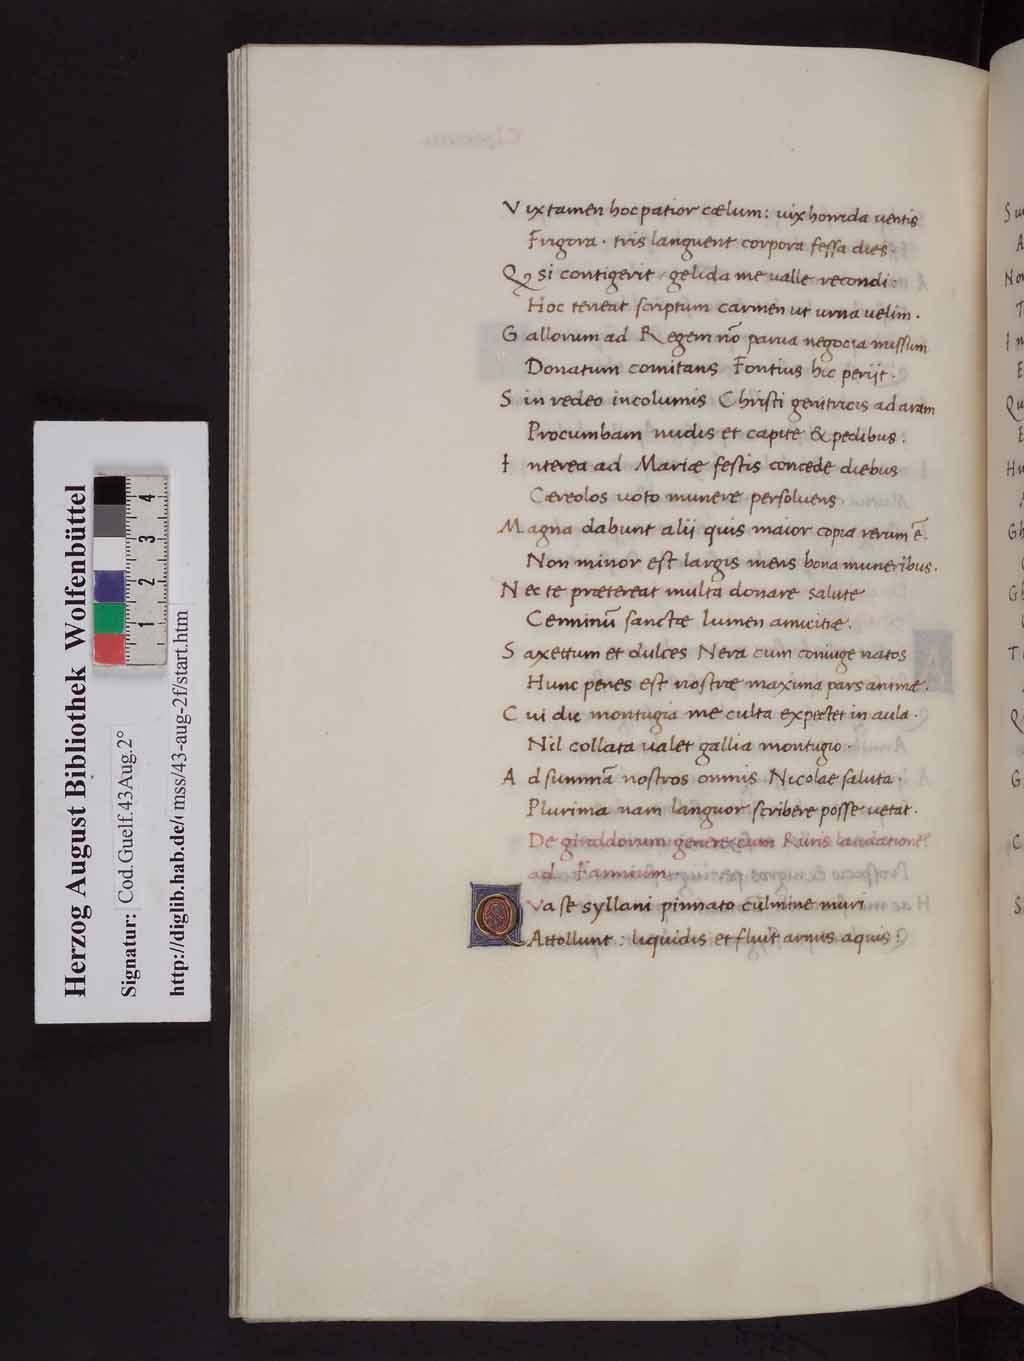 Vix tamen hoc patior cælum: uix horrida uentis
Frigora. tris languent corpora fessa dies.
Qͽ si contigerit gelida me ualle recondi:
Hoc teneat scriptum carmen ut urna uelim.
Gallorum ad Regem nō parua negocia missum
Donatum comitans Fontius hic perijt.
Sin redeo incolumis Christi genitricis ad aram
Procumbam nudis et capite & pedibus.
Interea ad Mariæ festis concede diebus
Cæreolos uoto munere persoluens
Magna dabunt alii quis maior copia rerum ē.
Non minor est largis mens bona muneribus.
Nec te prætereat multa donare salute
Cenninū sanctæ lumen amicitiæ.
Saxettum et dulces Nera cum coniuge natos
Hunc penes est nostræ maxima pars animæ.
Cui dic montugia me culta expectet in aula.
Nil collata ualet gallia montugio.
Ad summā nostros omnis Nicolae saluta.
Plurima nam languor scribere posse uetat.
De giraldorum genere cum Ruris laudatione
ad Fannium
Qva se syllani pinnato culmine muri
Attollunt: liquidis et fluit arnus aquis:
Herzog August Bibliothek Wolfenbüttel
Signatur: Cod. Guelf. 43 Aug. 2°
http://diglib.hab.de/ mss/43-aug-2f/start.htm
1 2 3 4